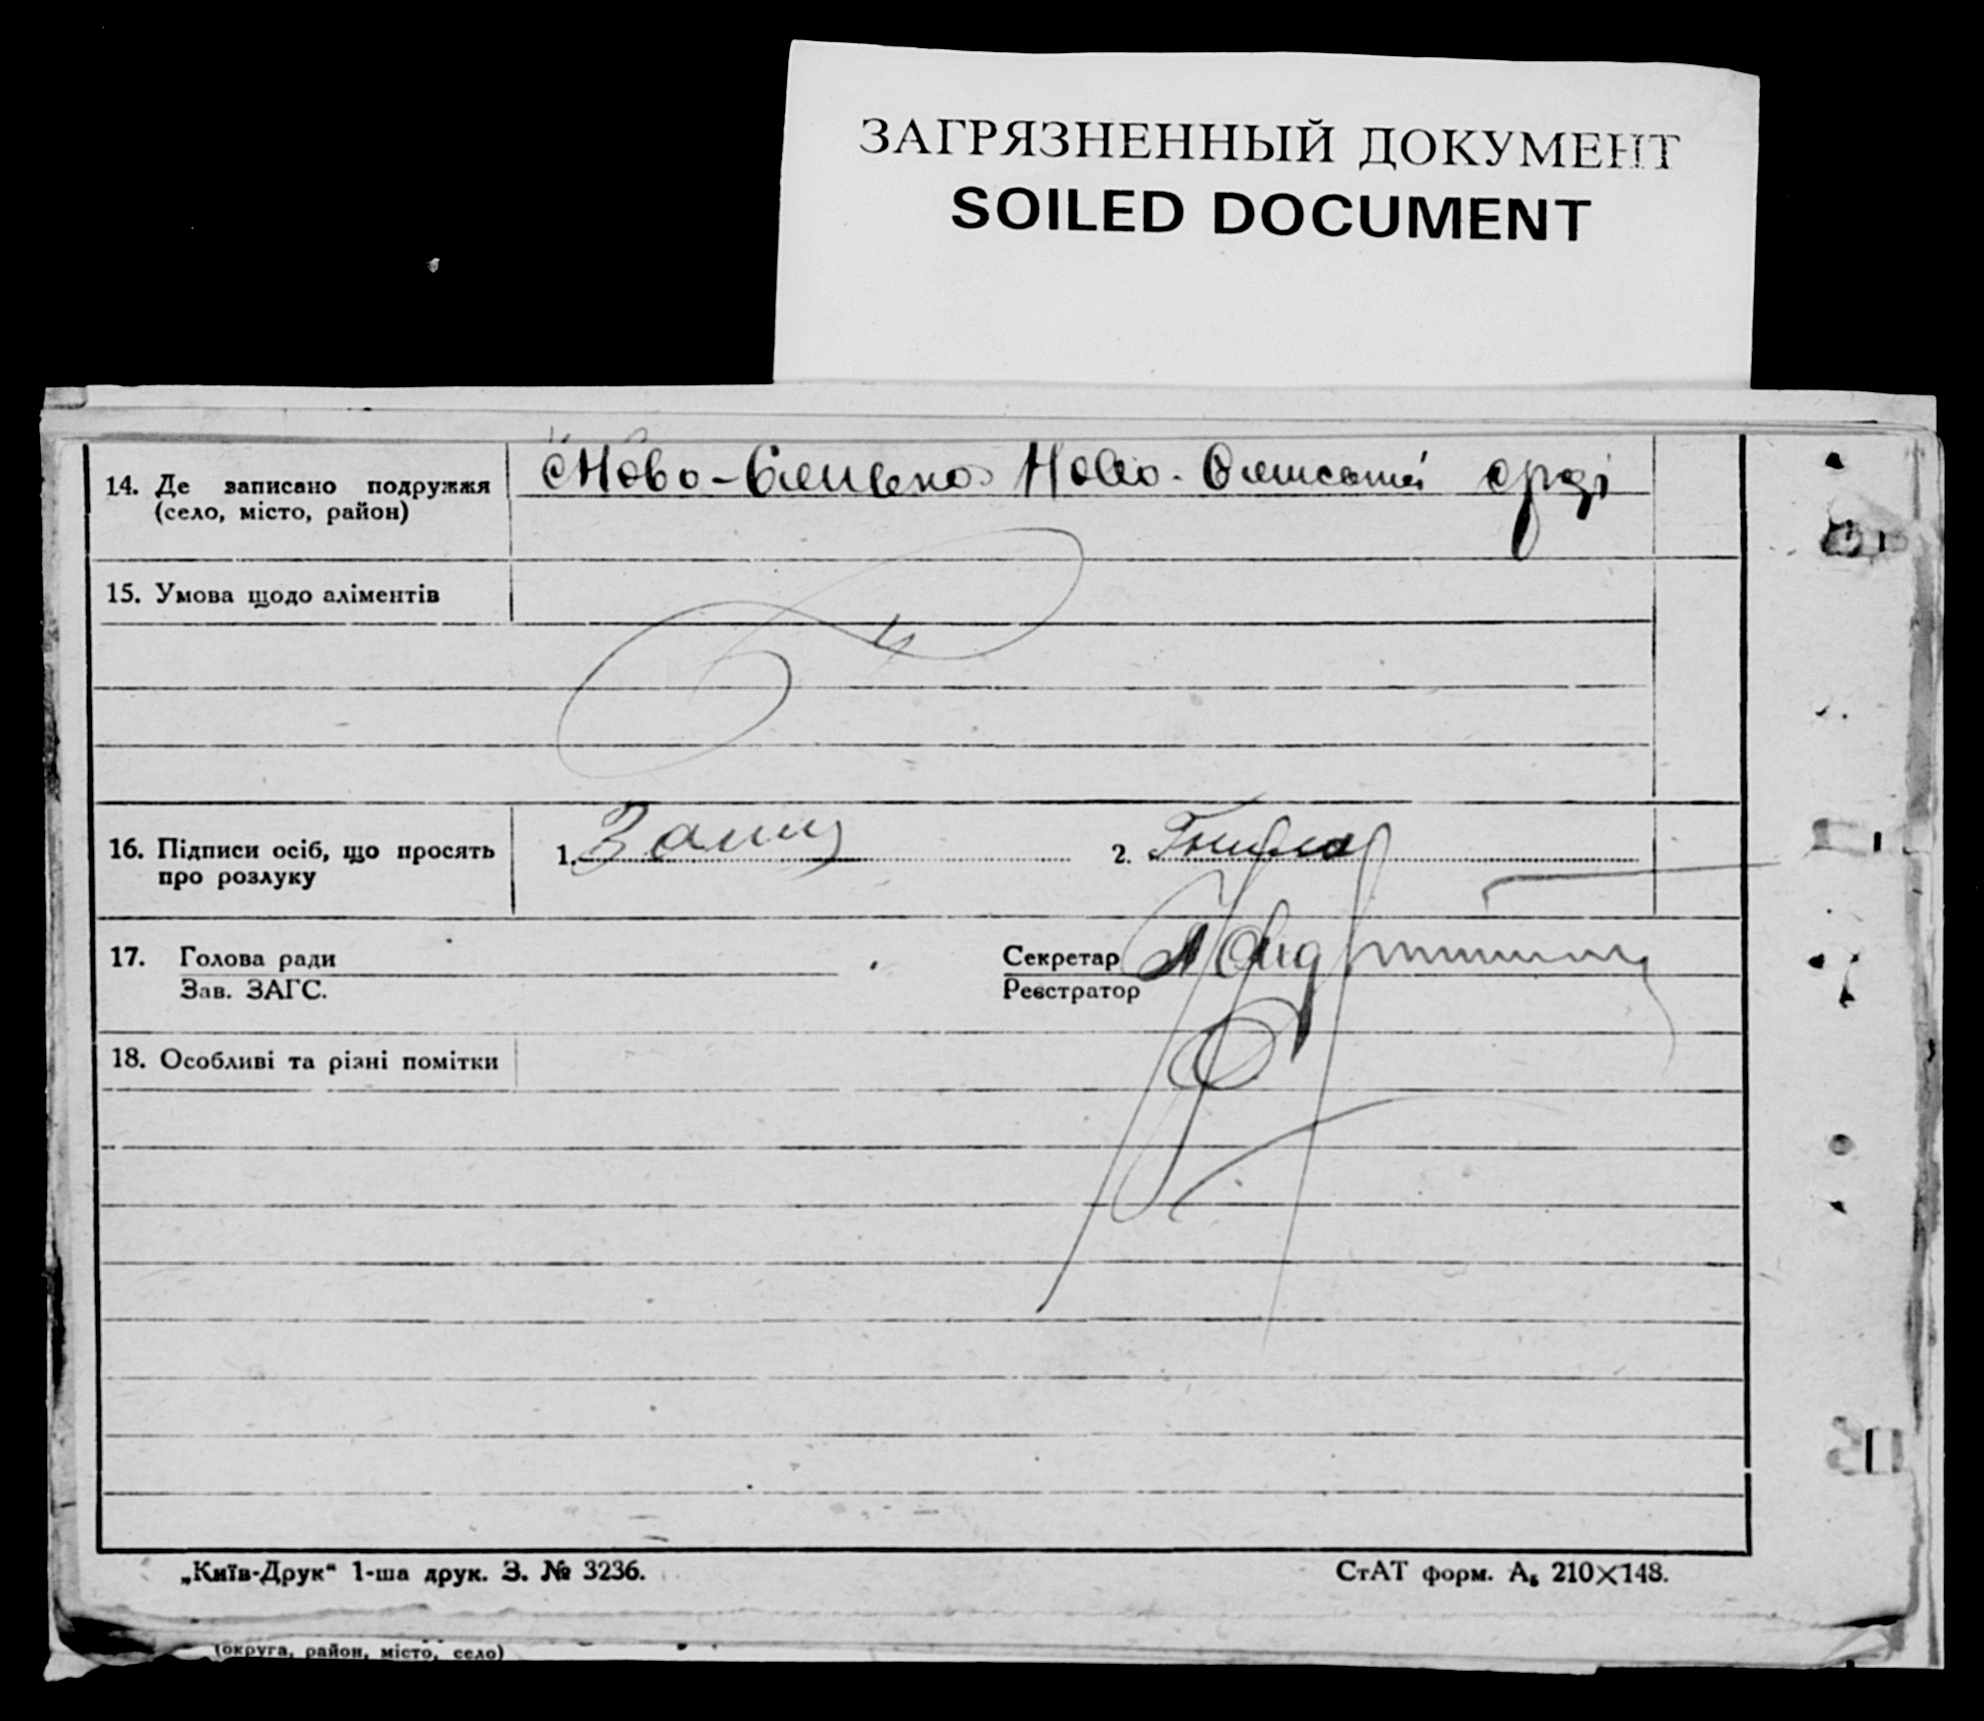 ЗАГРЯЗНЕННЫЙ ДОКУМЕНТ
SOILED DOCUMENT
14. Де записано подружжя
(село, місто, район)
15. Умова щодо аліментів
16. Підписи осіб, що просять
про розлуку
1.
2.
17. Голова ради
Зав. ЗАГС.
Секретар
Реєстратор
18. Особливі та різні помітки
„Київ-Друк“ 1-ша друк. З. № 3236.
СтАТ форм. А₅ 210×148.
(округа, район, місто, село)